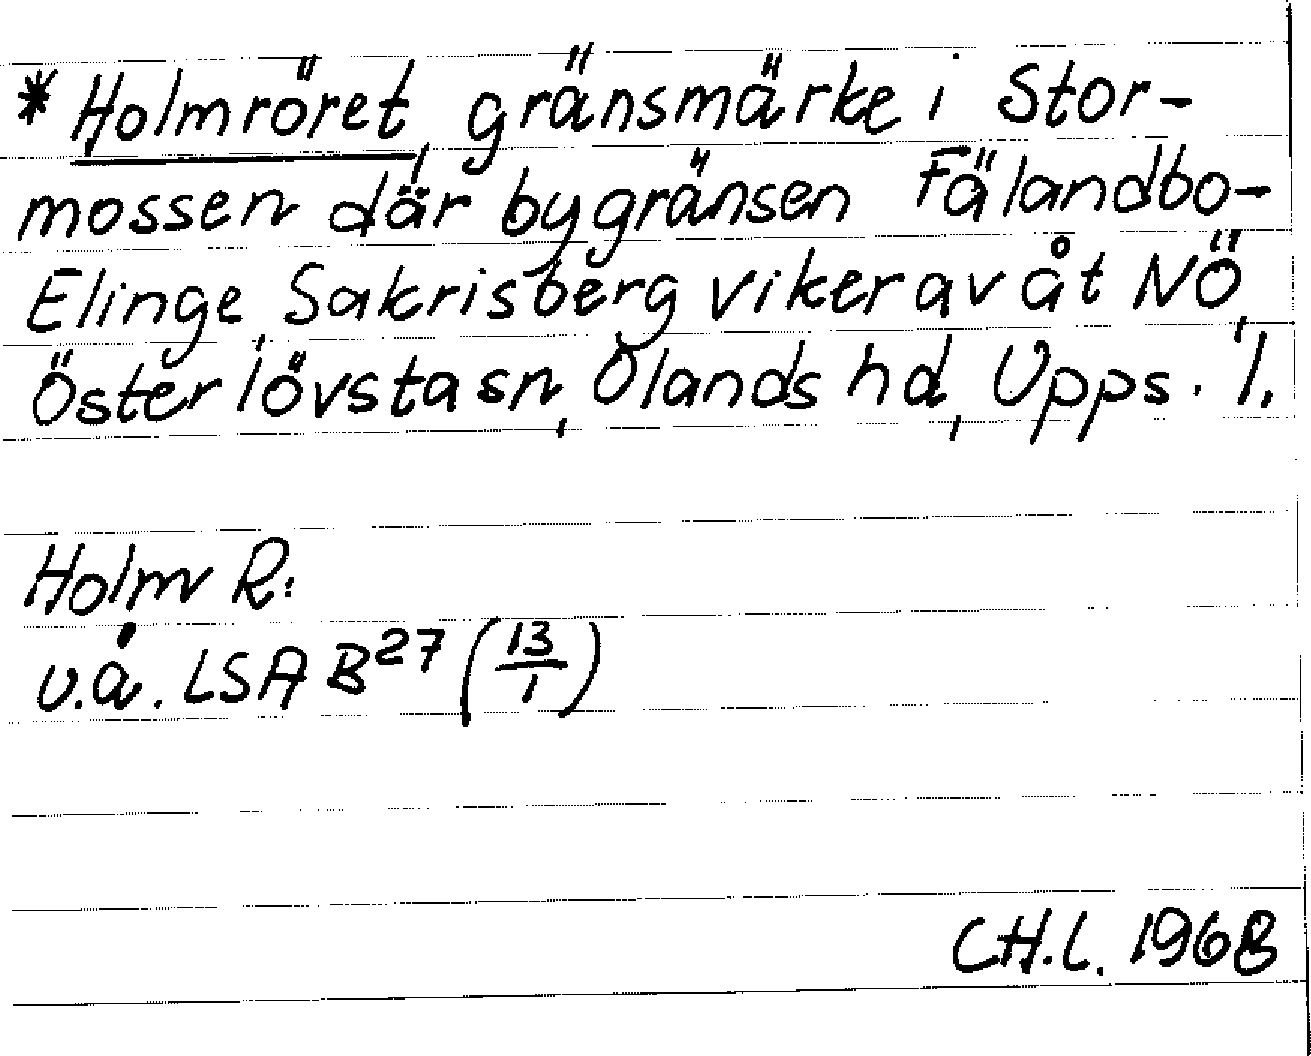 * Holmröret, gränsmärke i Stor-
mossen där bygränsen Fälandbo-
Elinge, Sakrisberg viker av åt NÖ,
Österlövsta sn, Olands hd, Upps. l.
Holm R:
u.å. LSA B27 (13/1)
CH.L. 1968